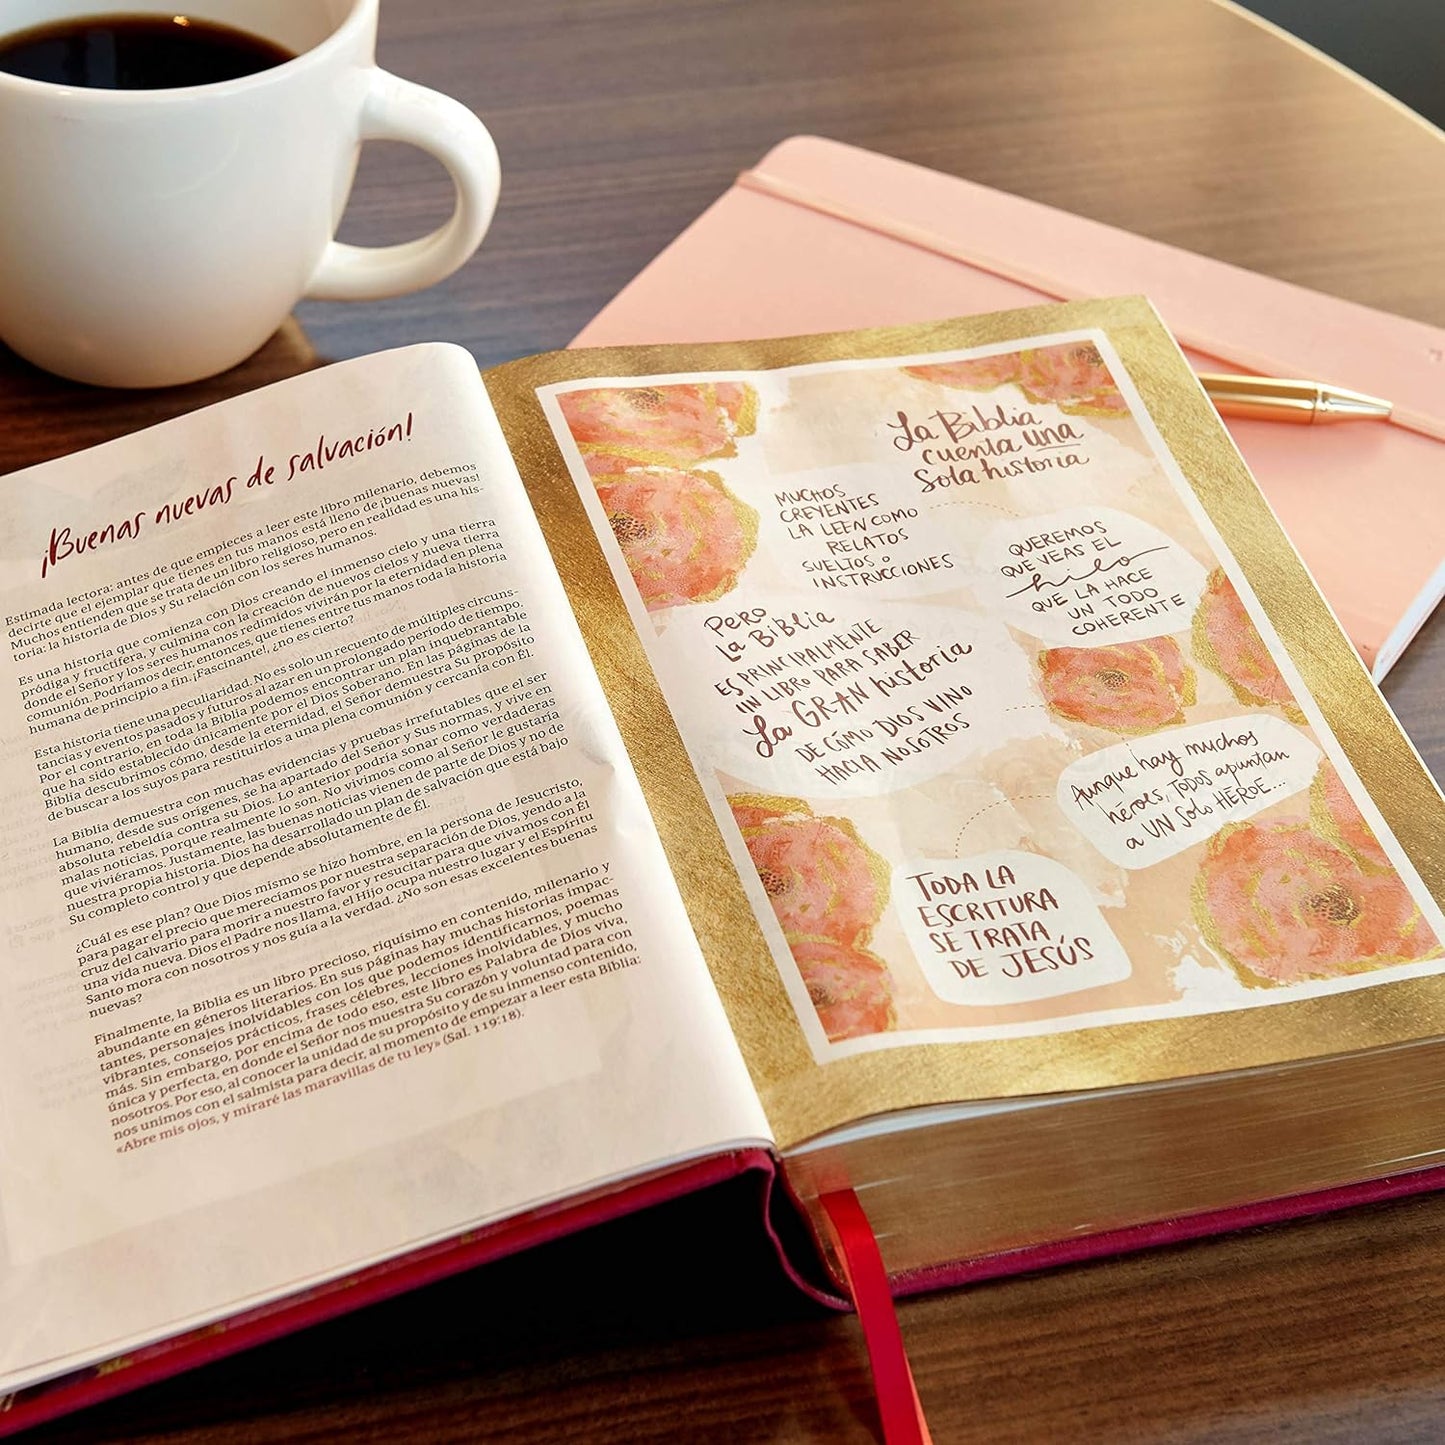 ¡Buenas nuevas de salvación!
Estimada lectora: antes de que empieces a leer este libro milenario, debemos
decirte que el ejemplar que tienes en tus manos está lleno de ¡buenas nuevas!
Muchos entienden que se trata de un libro religioso, pero en realidad es una his-
toria: la historia de Dios y Su relación con los seres humanos.
Es una historia que comienza con Dios creando el inmenso cielo y una tierra
pródiga y fructífera, y culmina con la creación de nuevos cielos y nueva tierra
donde el Señor y los seres humanos redimidos vivirán por la eternidad en plena
comunión. Podríamos decir, entonces, que tienes entre tus manos toda la historia
humana de principio a fin. ¡Fascinante!, ¿no es cierto?
Esta historia tiene una peculiaridad. No es solo un recuento de múltiples circuns-
tancias y eventos pasados y futuros al azar en un prolongado período de tiempo.
Por el contrario, en toda la Biblia podemos encontrar un plan inquebrantable
que ha sido establecido únicamente por el Dios Soberano. En las páginas de la
Biblia descubrimos cómo, desde la eternidad, el Señor demuestra Su propósito
de buscar a los suyos para restituirlos a una plena comunión y cercanía con Él.
La Biblia demuestra con muchas evidencias y pruebas irrefutables que el ser
humano, desde sus orígenes, se ha apartado del Señor y Sus normas, y vive en
absoluta rebeldía contra su Dios. Lo anterior podría sonar como verdaderas
malas noticias, porque realmente lo son. No vivimos como al Señor le gustaría
que viviéramos. Justamente, las buenas noticias vienen de parte de Dios y no de
nuestra propia historia. Dios ha desarrollado un plan de salvación que está bajo
Su completo control y que depende absolutamente de Él.
¿Cuál es ese plan? Que Dios mismo se hizo hombre, en la persona de Jesucristo,
para pagar el precio que merecíamos por nuestra separación de Dios, yendo a la
cruz del calvario para morir a nuestro favor y resucitar para que vivamos con Él
una vida nueva. Dios el Padre nos llama, el Hijo ocupa nuestro lugar y el Espíritu
Santo mora con nosotros y nos guía a la verdad. ¿No son esas excelentes buenas
nuevas?
Finalmente, la Biblia es un libro precioso, riquísimo en contenido, milenario y
abundante en géneros literarios. En sus páginas hay muchas historias impac-
tantes, personajes inolvidables con los que podemos identificarnos, poemas
vibrantes, consejos prácticos, frases célebres, lecciones inolvidables, y mucho
más. Sin embargo, por encima de todo eso, este libro es Palabra de Dios viva,
única y perfecta, en donde el Señor nos muestra Su corazón y voluntad para con
nosotros. Por eso, al conocer la unidad de su propósito y de su inmenso contenido,
nos unimos con el salmista para decir, al momento de empezar a leer esta Biblia:
«Abre mis ojos, y miraré las maravillas de tu ley» (Sal. 119:18).
La Biblia
cuenta una
sola historia
MUCHOS
CREYENTES
LA LEEN COMO
RELATOS
SUELTOS o
INSTRUCCIONES
QUEREMOS
QUE VEAS EL
hilo
QUE LA HACE
UN TODO
COHERENTE
PERO
LA BIBLIA
ES PRINCIPALMENTE
UN LIBRO PARA SABER
La GRAN historia
DE CÓMO DIOS VINO
HACIA NOSOTROS
Aunque hay muchos
héroes, TODOS apuntan
a UN Solo HÉROE...
TODA LA
ESCRITURA
SE TRATA
DE JESÚS